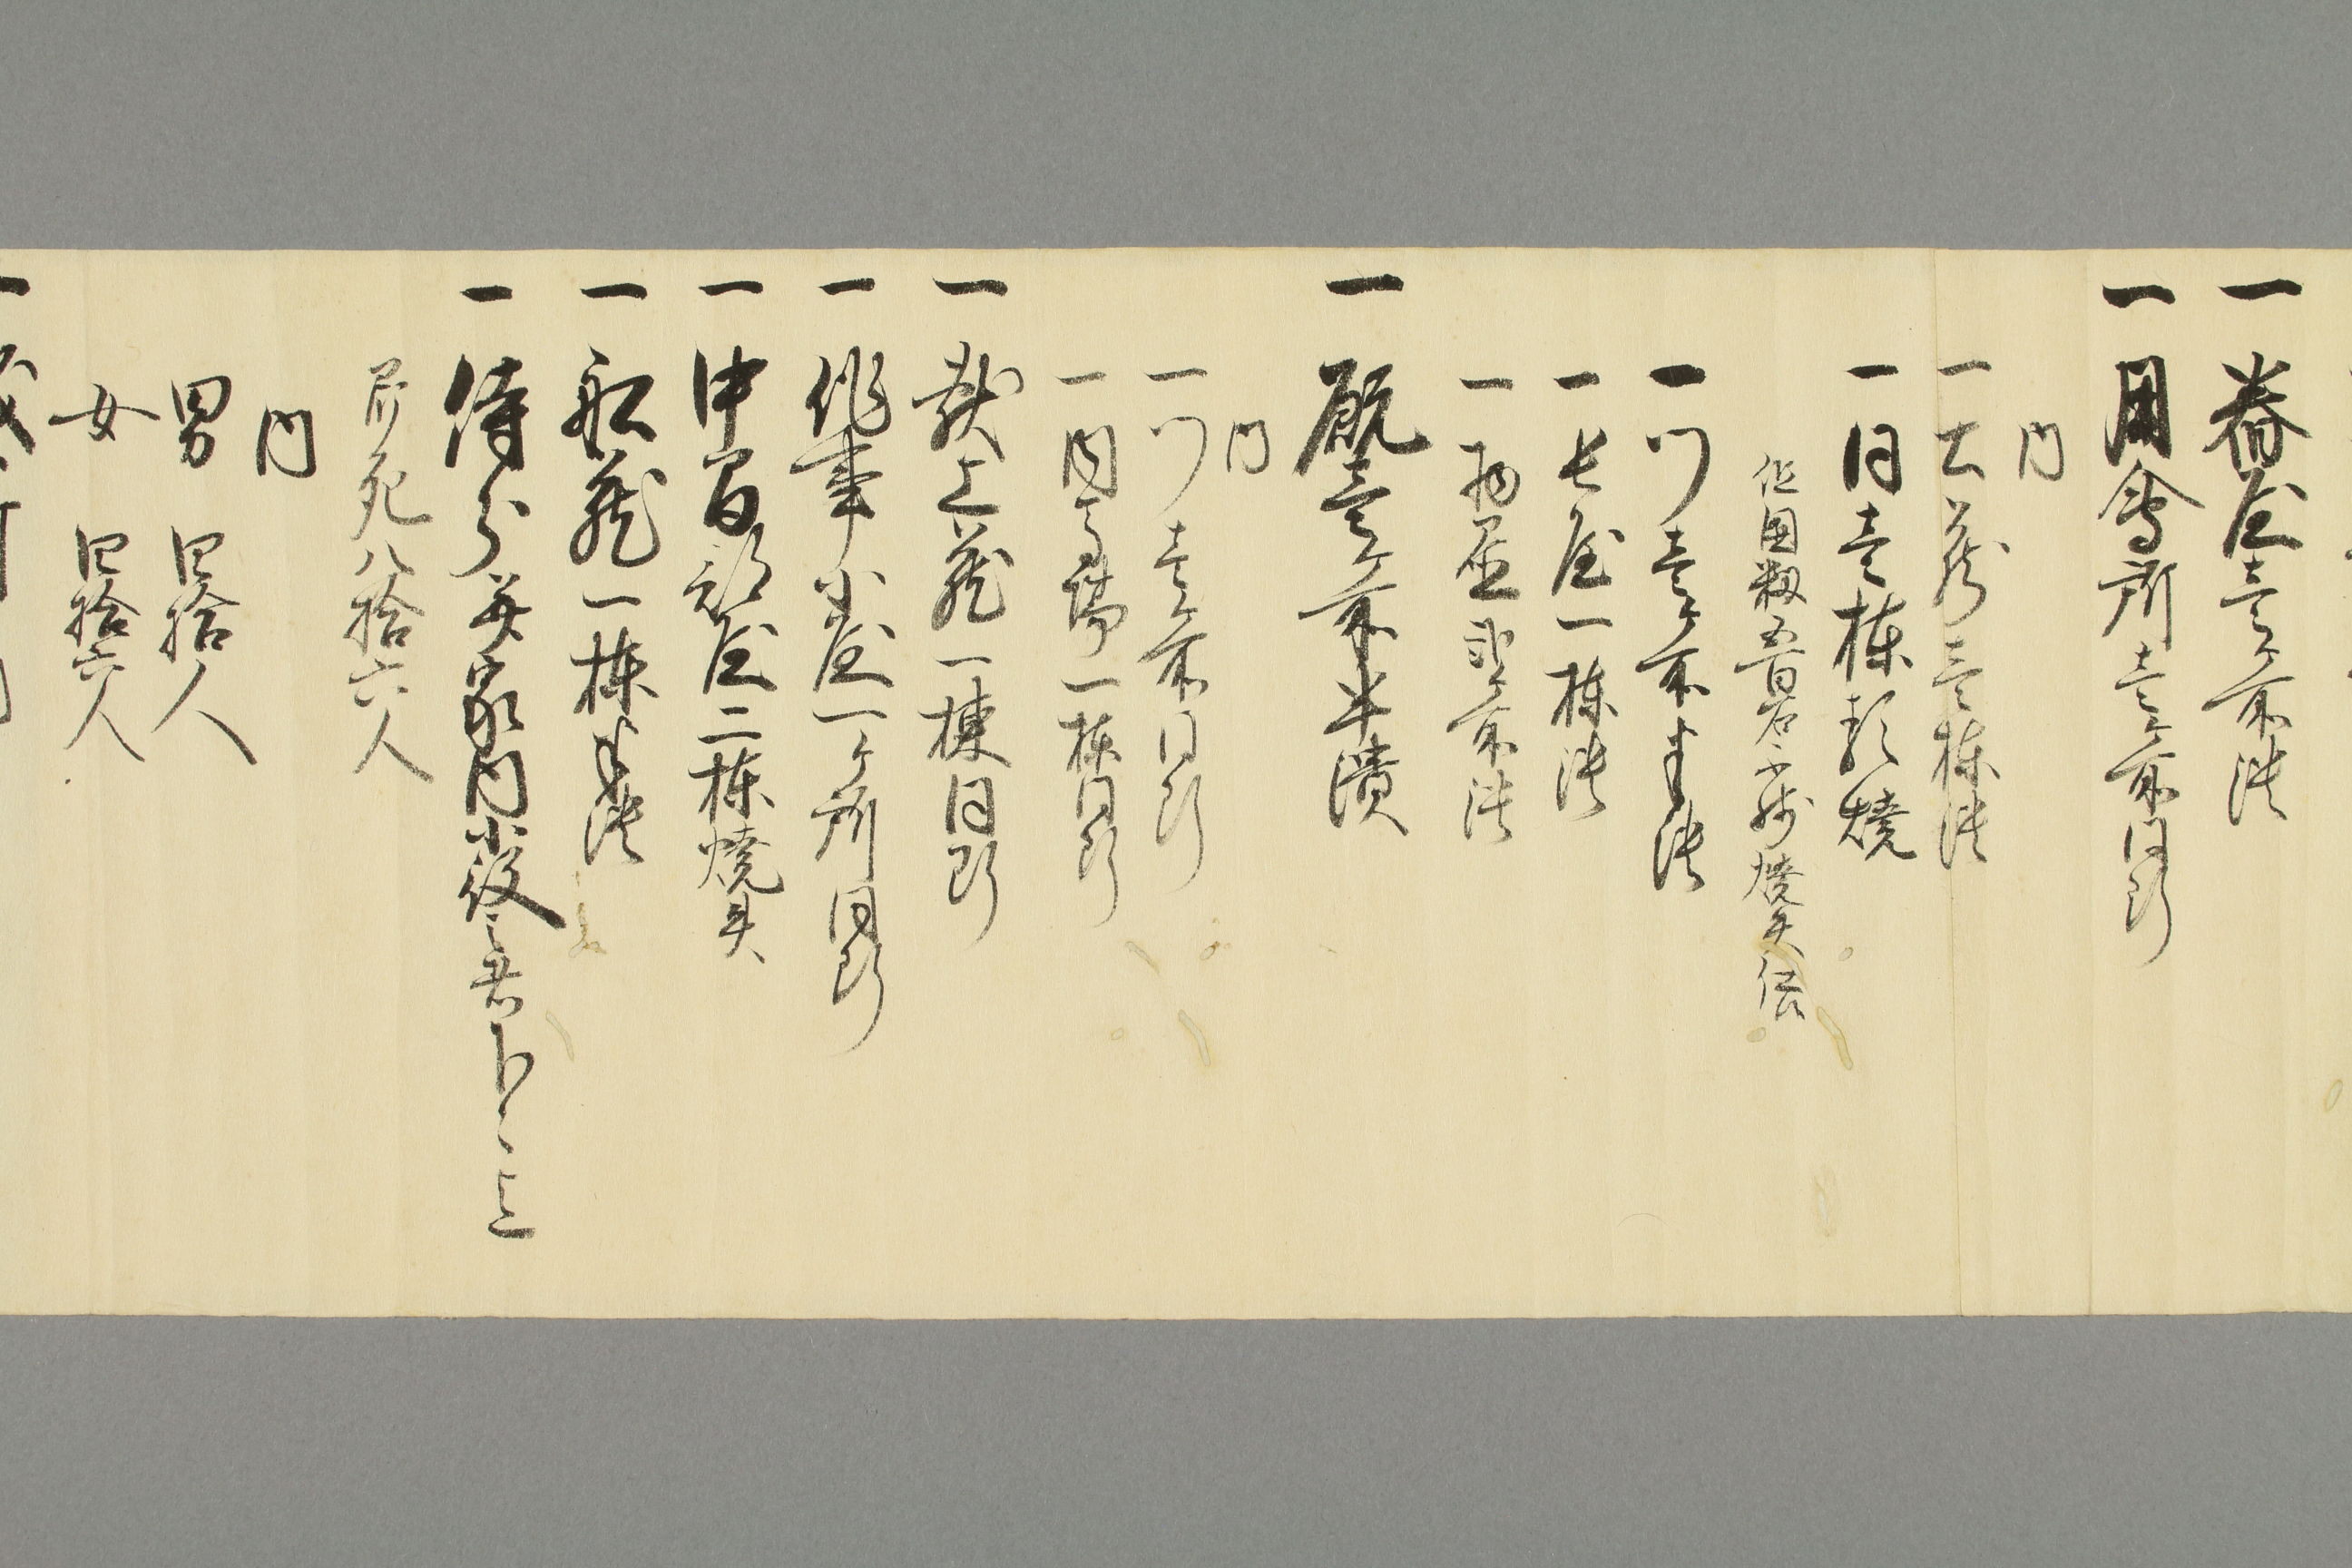 一 番屋壱ヶ所潰
一 用会所壱ヶ所同断
内
一 土蔵壱棟潰
一 同壱棟類焼
但囲籾五百石不残焼失仕候
一 門壱ヶ所半潰
一 長屋一棟潰
一 物置弐ヶ所潰
一 厩壱ヶ所半潰
内
一 門壱ヶ所同断
一 内馬場一棟同断
一 献上蔵一棟同断
一 作事小屋一ヶ所同断
一 中間部屋二棟焼失
一 船蔵一棟半潰
一 侍分并家内小役之者卜々迄
即死八拾六人
内
男 四拾人
女 四拾六人
一